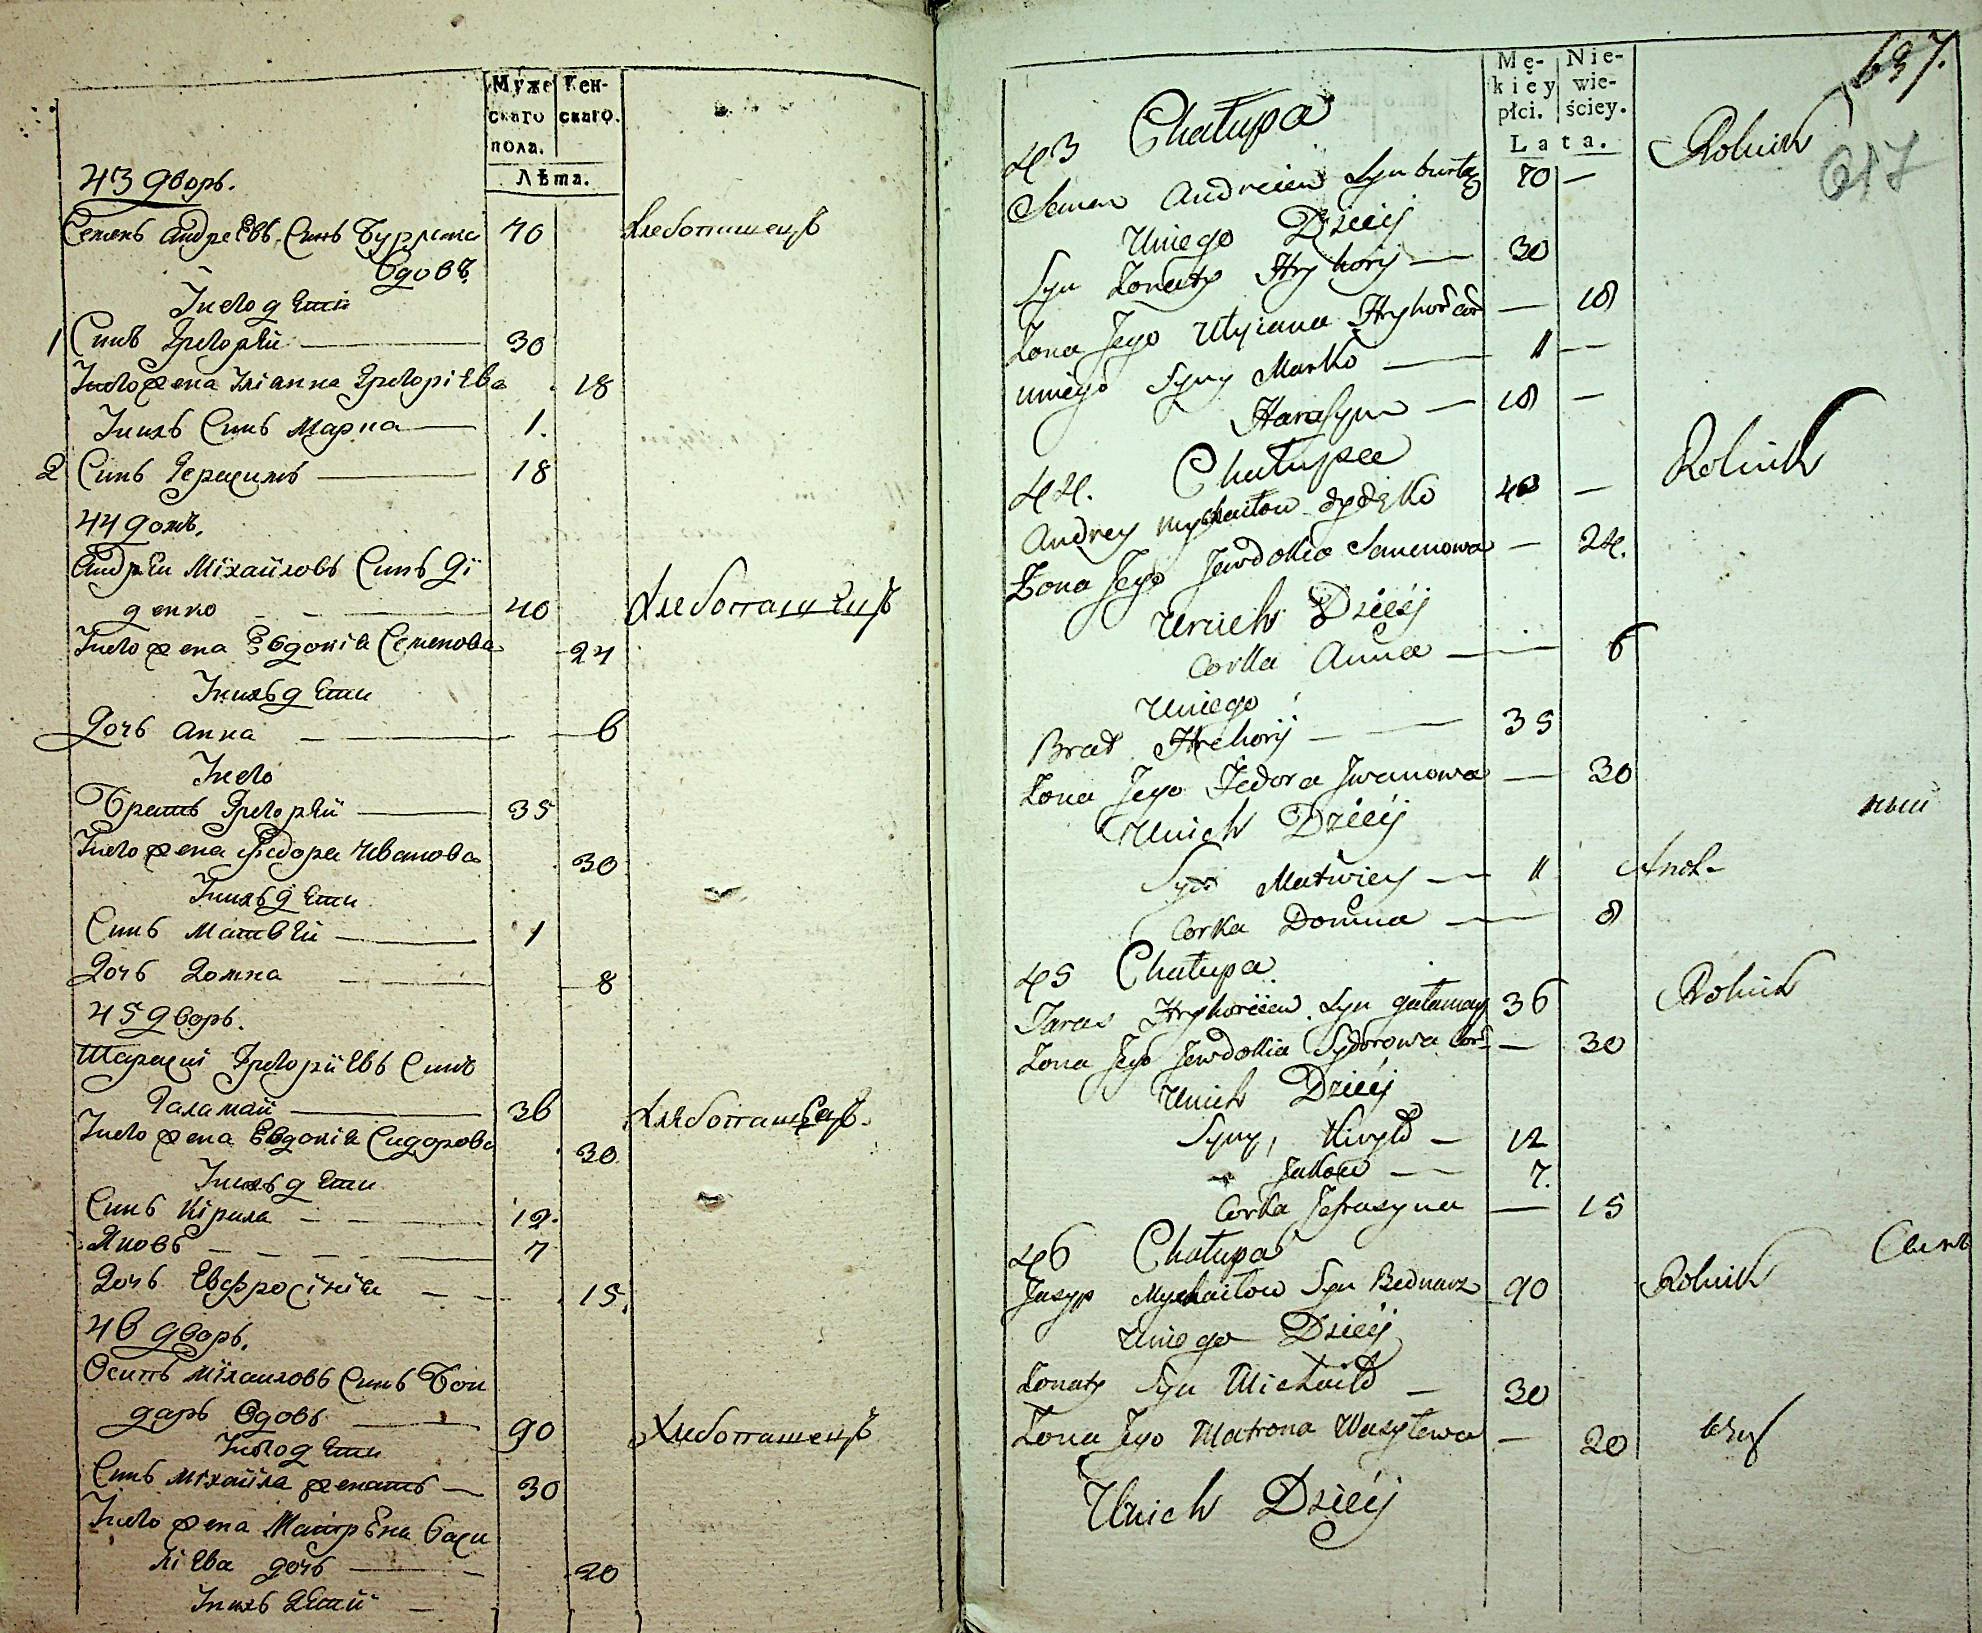 Муже
скаго
пола.
Жен-
скаго.
Лѣта.
43 дворъ.
Семенъ Андреевъ Синъ Бурлака 70 Хлебопашецъ
Вдовъ
У него дети
1 Синъ Григорей — 30
У него жена Улианна Григоріева 18
У нихъ Синъ Марко — 1.
2 Синъ Герасимъ — 18
44 домъ.
Андрей Міхайловъ Синъ Ді
денко — 40 Хлебопашецъ
У него жена Евдокія Семенова 24
У нихъ дети
Дочь Анна — 6
У него
Братъ Григорей — 35
У него жена Федора Иванова 30
У нихъ дети
Синъ Матвей — 1
Дочь Домна — 8
45 дворъ.
Тарасій Григоріевъ Синъ
Галамай — 36 Хлебопашецъ.
У него жена Евдокія Сидорова 30
У нихъ дети
Синъ Кірила — 12.
Яковъ — 7
Дочь Евфросінія — 15.
46 дворъ.
Осипъ Міхаиловъ Синъ Бон
даръ Вдовъ — 90 Хлебопашецъ
У него дети
Синъ Міхайла женатъ — 30
У него жена Матрена Васи
лиева дочь — 20
У нихъ Дети —
637.
617
Mę-
kiey
płci.
Nie-
wie-
ściey.
Lata.
43 Chałupa Rolnik
Semen Andreiew Syn 70 —
Uniego Dzieéj
Syn Żonaty Hryhorij — 30
Żona Jego Ulyiana Hryhor cor — 18
uniego Syny Marko — 1 —
Harasym — 18 —
44. Chałupa Rolnik
Andrey Mychaiłow Dydeńko 40 —
Żona Jego Jewdokia Semenowa — 24.
Unich Dzieéj
Corka Anna — 6
Uniego
Brat Hrehorij — 35
Żona Jego Fedora Jwanowa — 30
Unich Dzieéj
ный
Syn Matwiey — 1
Corka Domna — 8
45 Chałupa Rolnik
Taras Hryhoriiew Syn gałamay 36
Żona Jego Jewdokia Sydorowa Cor — 30
Unich Dzieéj
Syny, Kiryło — 12
Jakow — 7.
Corka Jefrasyna — 15
46 Chałupa
Jusyp Mychaiłow Syn Bednarz 90 Rolnik
Uniego Dzieéj
Żonaty Syn Michaiło — 30
Żona Jego Matrona Wasylewa — 20
Unich Dzieéj